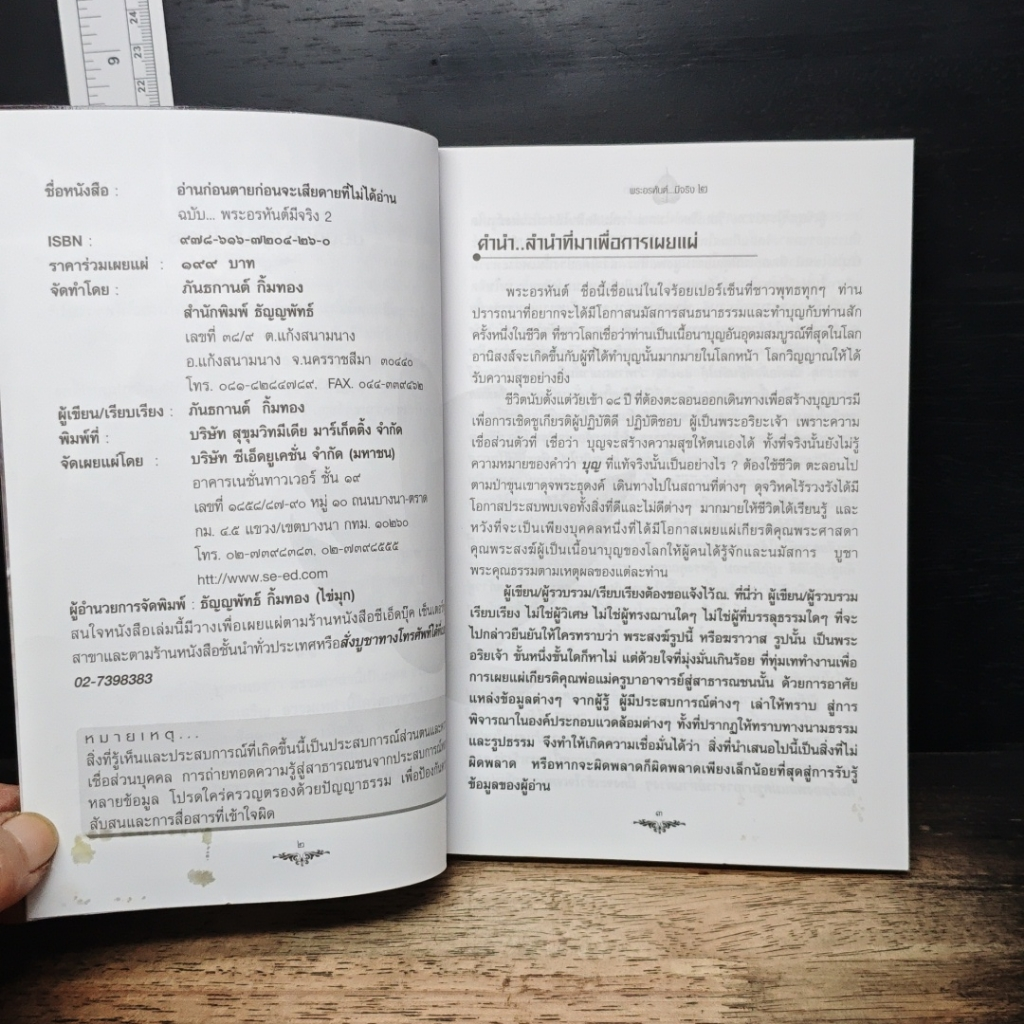 24
23
9
22
ชื่อหนังสือ : อ่านก่อนตายก่อนจะเสียดายที่ไม่ได้อ่าน
ฉบับ... พระอรหันต์มีจริง 2
ISBN : ๙๗๘-๖๑๖-๗๒๐๔-๒๖-๐
ราคาร่วมเผยแผ่ : ๑๙๙ บาท
จัดทำโดย : ภันธกานต์ กิ้มทอง
สำนักพิมพ์ ธัญญพัทธ์
เลขที่ ๓๘/๙ ต.แก้งสนามนาง
อ.แก้งสนามนาง จ.นครราชสีมา ๓๐๔๔๐
โทร. ๐๘๑-๘๒๘๔๗๘๙, FAX. ๐๔๔-๓๓๙๔๖๒
ผู้เขียน/เรียบเรียง : ภันธกานต์ กิ้มทอง
พิมพ์ที่ : บริษัท สุขุมวิทมีเดีย มาร์เก็ตติ้ง จำกัด
จัดเผยแผ่โดย : บริษัท ซีเอ็ดยูเคชั่น จำกัด (มหาชน)
อาคารเนชั่นทาวเวอร์ ชั้น ๑๙
เลขที่ ๑๘๕๘/๘๗-๙๐ หมู่ ๑๐ ถนนบางนา-ตราด
กม. ๔.๕ แขวง/เขตบางนา กทม. ๑๐๒๖๐
โทร. ๐๒-๗๓๙๘๓๘๓, ๐๒-๗๓๙๘๕๕๕
htt://www.se-ed.com
ผู้อำนวยการจัดพิมพ์ : ธัญญพัทธ์ กิ้มทอง (ไข่มุก)
สนใจหนังสือเล่มนี้มีวางเพื่อเผยแผ่ตามร้านหนังสือซีเอ็ดบุ๊ค เซ็นเตอร์
สาขาและตามร้านหนังสือชั้นนำทั่วประเทศหรือสั่งบูชาทางโทรศัพท์ได้ที่
02-7398383
หมายเหตุ...
สิ่งที่รู้เห็นและประสบการณ์ที่เกิดขึ้นนี้เป็นประสบการณ์ส่วนตน
เชื่อส่วนบุคคล การถ่ายทอดความรู้สู่สาธารณชนจากประสบการณ์
หลายข้อมูล โปรดใคร่ครวญตรองด้วยปัญญาธรรม เพื่อป้องกัน
สับสนและการสื่อสารที่เข้าใจผิด
๒
พระอรหันต์...มีจริง ๒
คำนำ..ลำนำที่มาเพื่อการเผยแผ่
พระอรหันต์ ชื่อนี้เชื่อแน่ในใจร้อยเปอร์เซ็นที่ชาวพุทธทุกๆ ท่าน
ปรารถนาที่อยากจะได้มีโอกาสนมัสการสนธนาธรรมและทำบุญกับท่านสัก
ครั้งหนึ่งในชีวิต ที่ชาวโลกเชื่อว่าท่านเป็นเนื้อนาบุญอันอุดมสมบูรณ์ที่สุดในโลก
อานิสงส์จะเกิดขึ้นกับผู้ที่ได้ทำบุญนั้นมากมายในโลกหน้า โลกวิญญาณให้ได้
รับความสุขอย่างยิ่ง
ชีวิตนับตั้งแต่วัยเข้า ๑๘ ปี ที่ต้องตะลอนออกเดินทางเพื่อสร้างบุญบารมี
เพื่อการเชิดชูเกียรติผู้ปฏิบัติดี ปฏิบัติชอบ ผู้เป็นพระอริยะเจ้า เพราะความ
เชื่อส่วนตัวที่ เชื่อว่า บุญจะสร้างความสุขให้ตนเองได้ ทั้งที่จริงนั้นยังไม่รู้
ความหมายของคำว่า บุญ ที่แท้จริงนั้นเป็นอย่างไร ? ต้องใช้ชีวิต ตะลอนไป
ตามป่าขุนเขาดุจพระธุดงค์ เดินทางไปในสถานที่ต่างๆ ดุจวิหคไร้รวงรังได้มี
โอกาสประสบพบเจอทั้งสิ่งที่ดีและไม่ดีต่างๆ มากมายให้ชีวิตได้เรียนรู้ และ
หวังที่จะเป็นเพียงบุคคลหนึ่งที่ได้มีโอกาสเผยแผ่เกียรติคุณพระศาสดา
คุณพระสงฆ์ผู้เป็นเนื้อนาบุญของโลกให้ผู้คนได้รู้จักและนมัสการ บูชา
พระคุณธรรมตามเหตุผลของแต่ละท่าน
ผู้เขียน/ผู้รวบรวม/เรียบเรียงต้องขอแจ้งไว้ณ. ที่นี่ว่า ผู้เขียน/ผู้รวบรวม
เรียบเรียง ไม่ใช่ผู้วิเศษ ไม่ใช่ผู้ทรงฌานใดๆ ไม่ใช่ผู้ที่บรรลุธรรมใดๆ ที่จะ
ไปกล่าวยืนยันให้ใครทราบว่า พระสงฆ์รูปนี้ หรือฆราวาส รูปนั้น เป็นพระ
อริยเจ้า ขั้นหนึ่งขั้นใดก็หาไม่ แต่ด้วยใจที่มุ่งมั่นเกินร้อย ที่ทุ่มเททำงานเพื่อ
การเผยแผ่เกียรติคุณพ่อแม่ครูบาอาจารย์สู่สาธารณชนนั้น ด้วยการอาศัย
แหล่งข้อมูลต่างๆ จากผู้รู้ ผู้มีประสบการณ์ต่างๆ เล่าให้ทราบ สู่การ
พิจารณาในองค์ประกอบแวดล้อมต่างๆ ทั้งที่ปรากฏให้ทราบทางนามธรรม
และรูปธรรม จึงทำให้เกิดความเชื่อมั่นได้ว่า สิ่งที่นำเสนอไปนี้เป็นสิ่งที่ไม่
ผิดพลาด หรือหากจะผิดพลาดก็ผิดพลาดเพียงเล็กน้อยที่สุดสู่การรับรู้
ข้อมูลของผู้อ่าน
๓